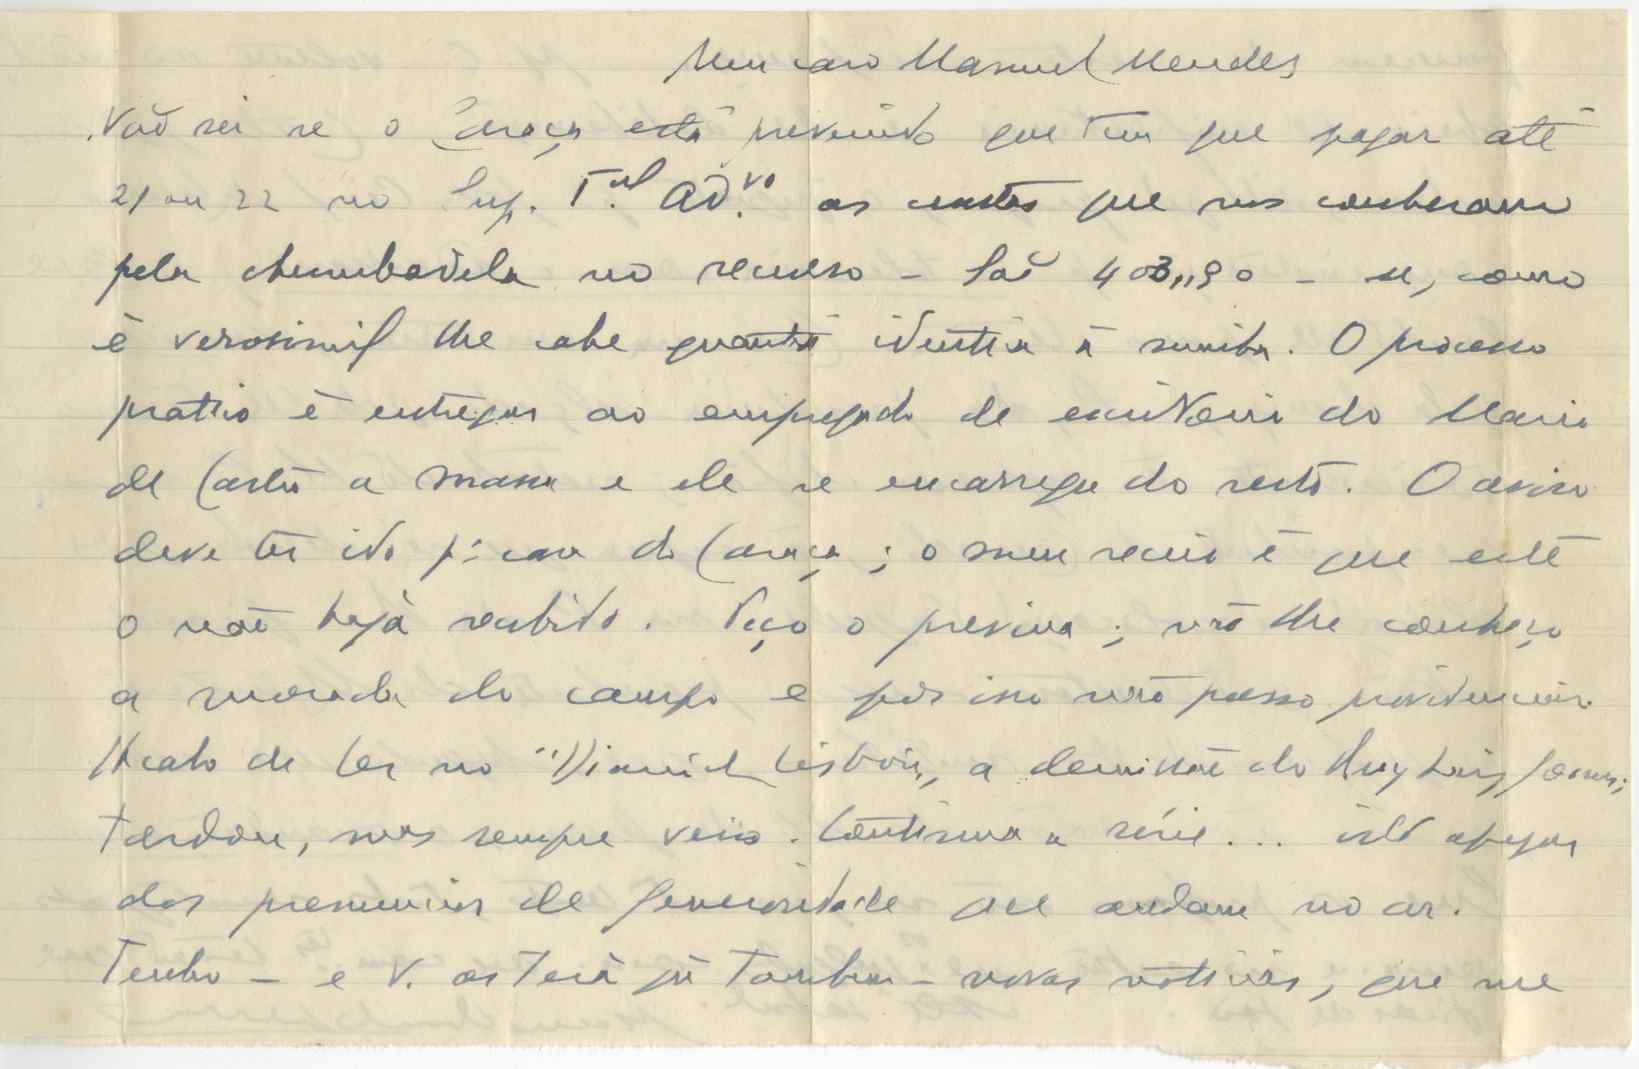 Meu caro Manuel Mendes
Não sei se o Caraça está prevenido que tem que pagar até
21 ou 22 no Sup. T.al Ad.vo as custas que nos couberam
pela chumbadela no recurso – São 403,,90 – se, como
é verosimil lhe cabe quantia identica à minha. O processo
pratico é entregar ao empregado de escritorio do Mario
de Castro a massa e ele se encarregue do resto. O aviso
deve ter ido p.ª casa do Caraça; o meu receio é que este
o não haja recebido. Peço o previna; não lhe conheço
a morada do campo e por isso não posso providenciar.
Acabo de ler no "Diario de Lisboa", a demissão do Ruy Luis Gomes;
tardou, mas sempre veio. Continua a série... isto apezar
dos prenuncios de generosidade que andam no ar.
Tenho – e V. as terá já tambem – novas noticias, que me